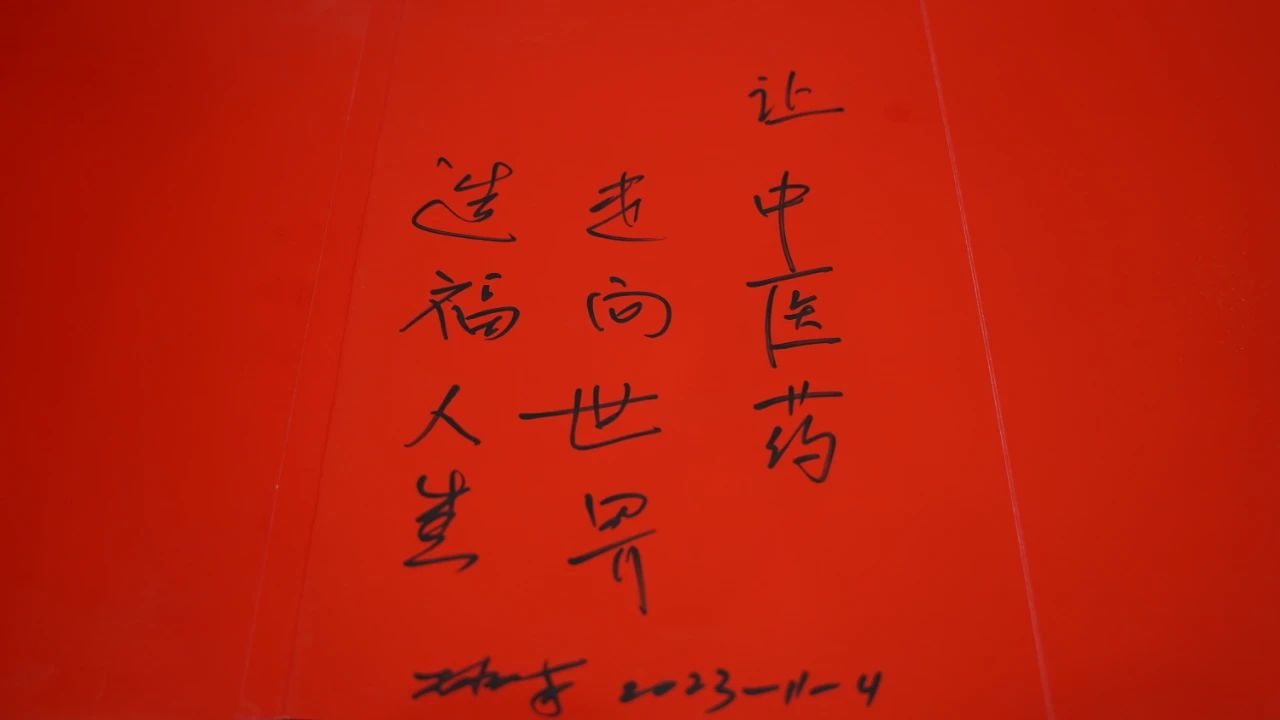 让中医药
走向世界
造福人生
2023-11-4